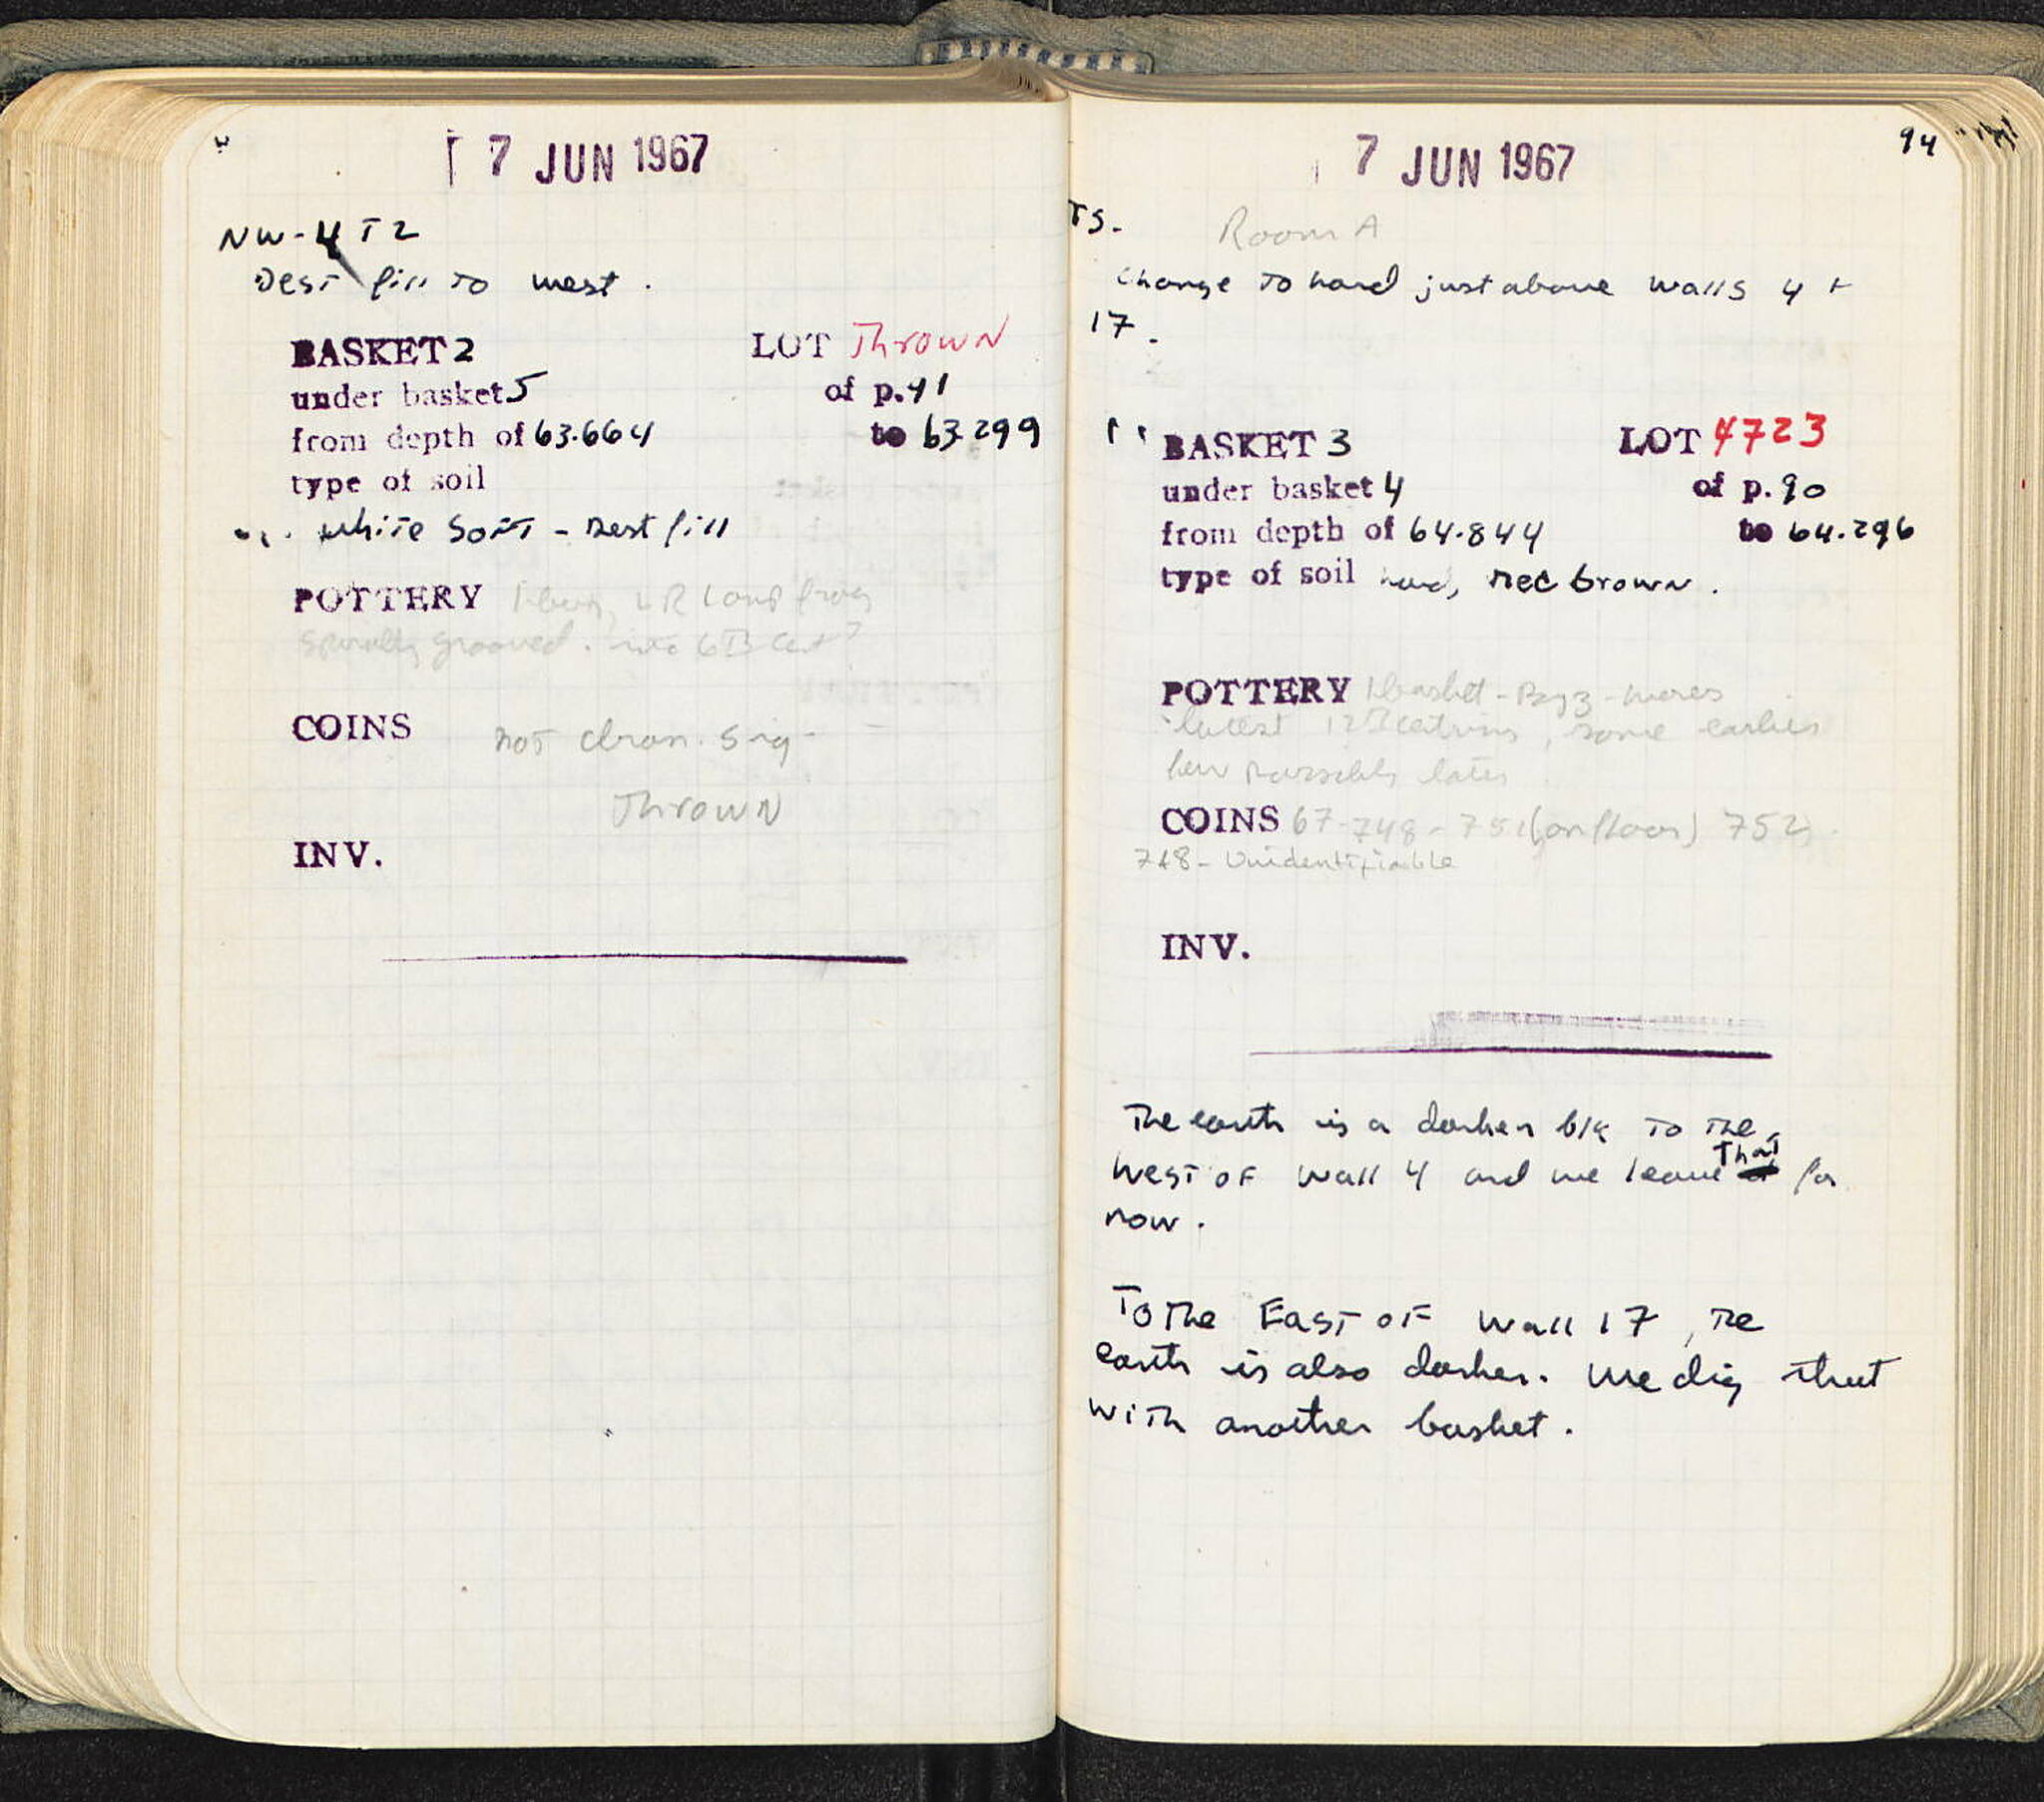 7 JUN 1967
NW-4 T2
Dest fill to west.
BASKET 2 LOT Thrown
under basket 5 of p. 41
from depth of 63.664 to 63.299
type of soil
white soft - Dest fill
POTTERY LR lamp frag
Spirally grooved. into 6th cent?
COINS not chron. sig.
Thrown
INV.
7 JUN 1967
94
TS. Room A
Change to hard just above walls 4 +
17.
BASKET 3 LOT 4723
under basket 4 of p. 90
from depth of 64.844 to 64.296
type of soil hard, med brown.
POTTERY 1 basket - Byz - wares
latest 12th century, some earlier
few possibly later
COINS 67-748 - 751 (on floor) 752
748 - Unidentifiable
INV.
The earth is a darker blk to the
West of Wall 4 and we leave that for
now.
To the East of Wall 17, the
earth is also darker. We dig that
with another basket.